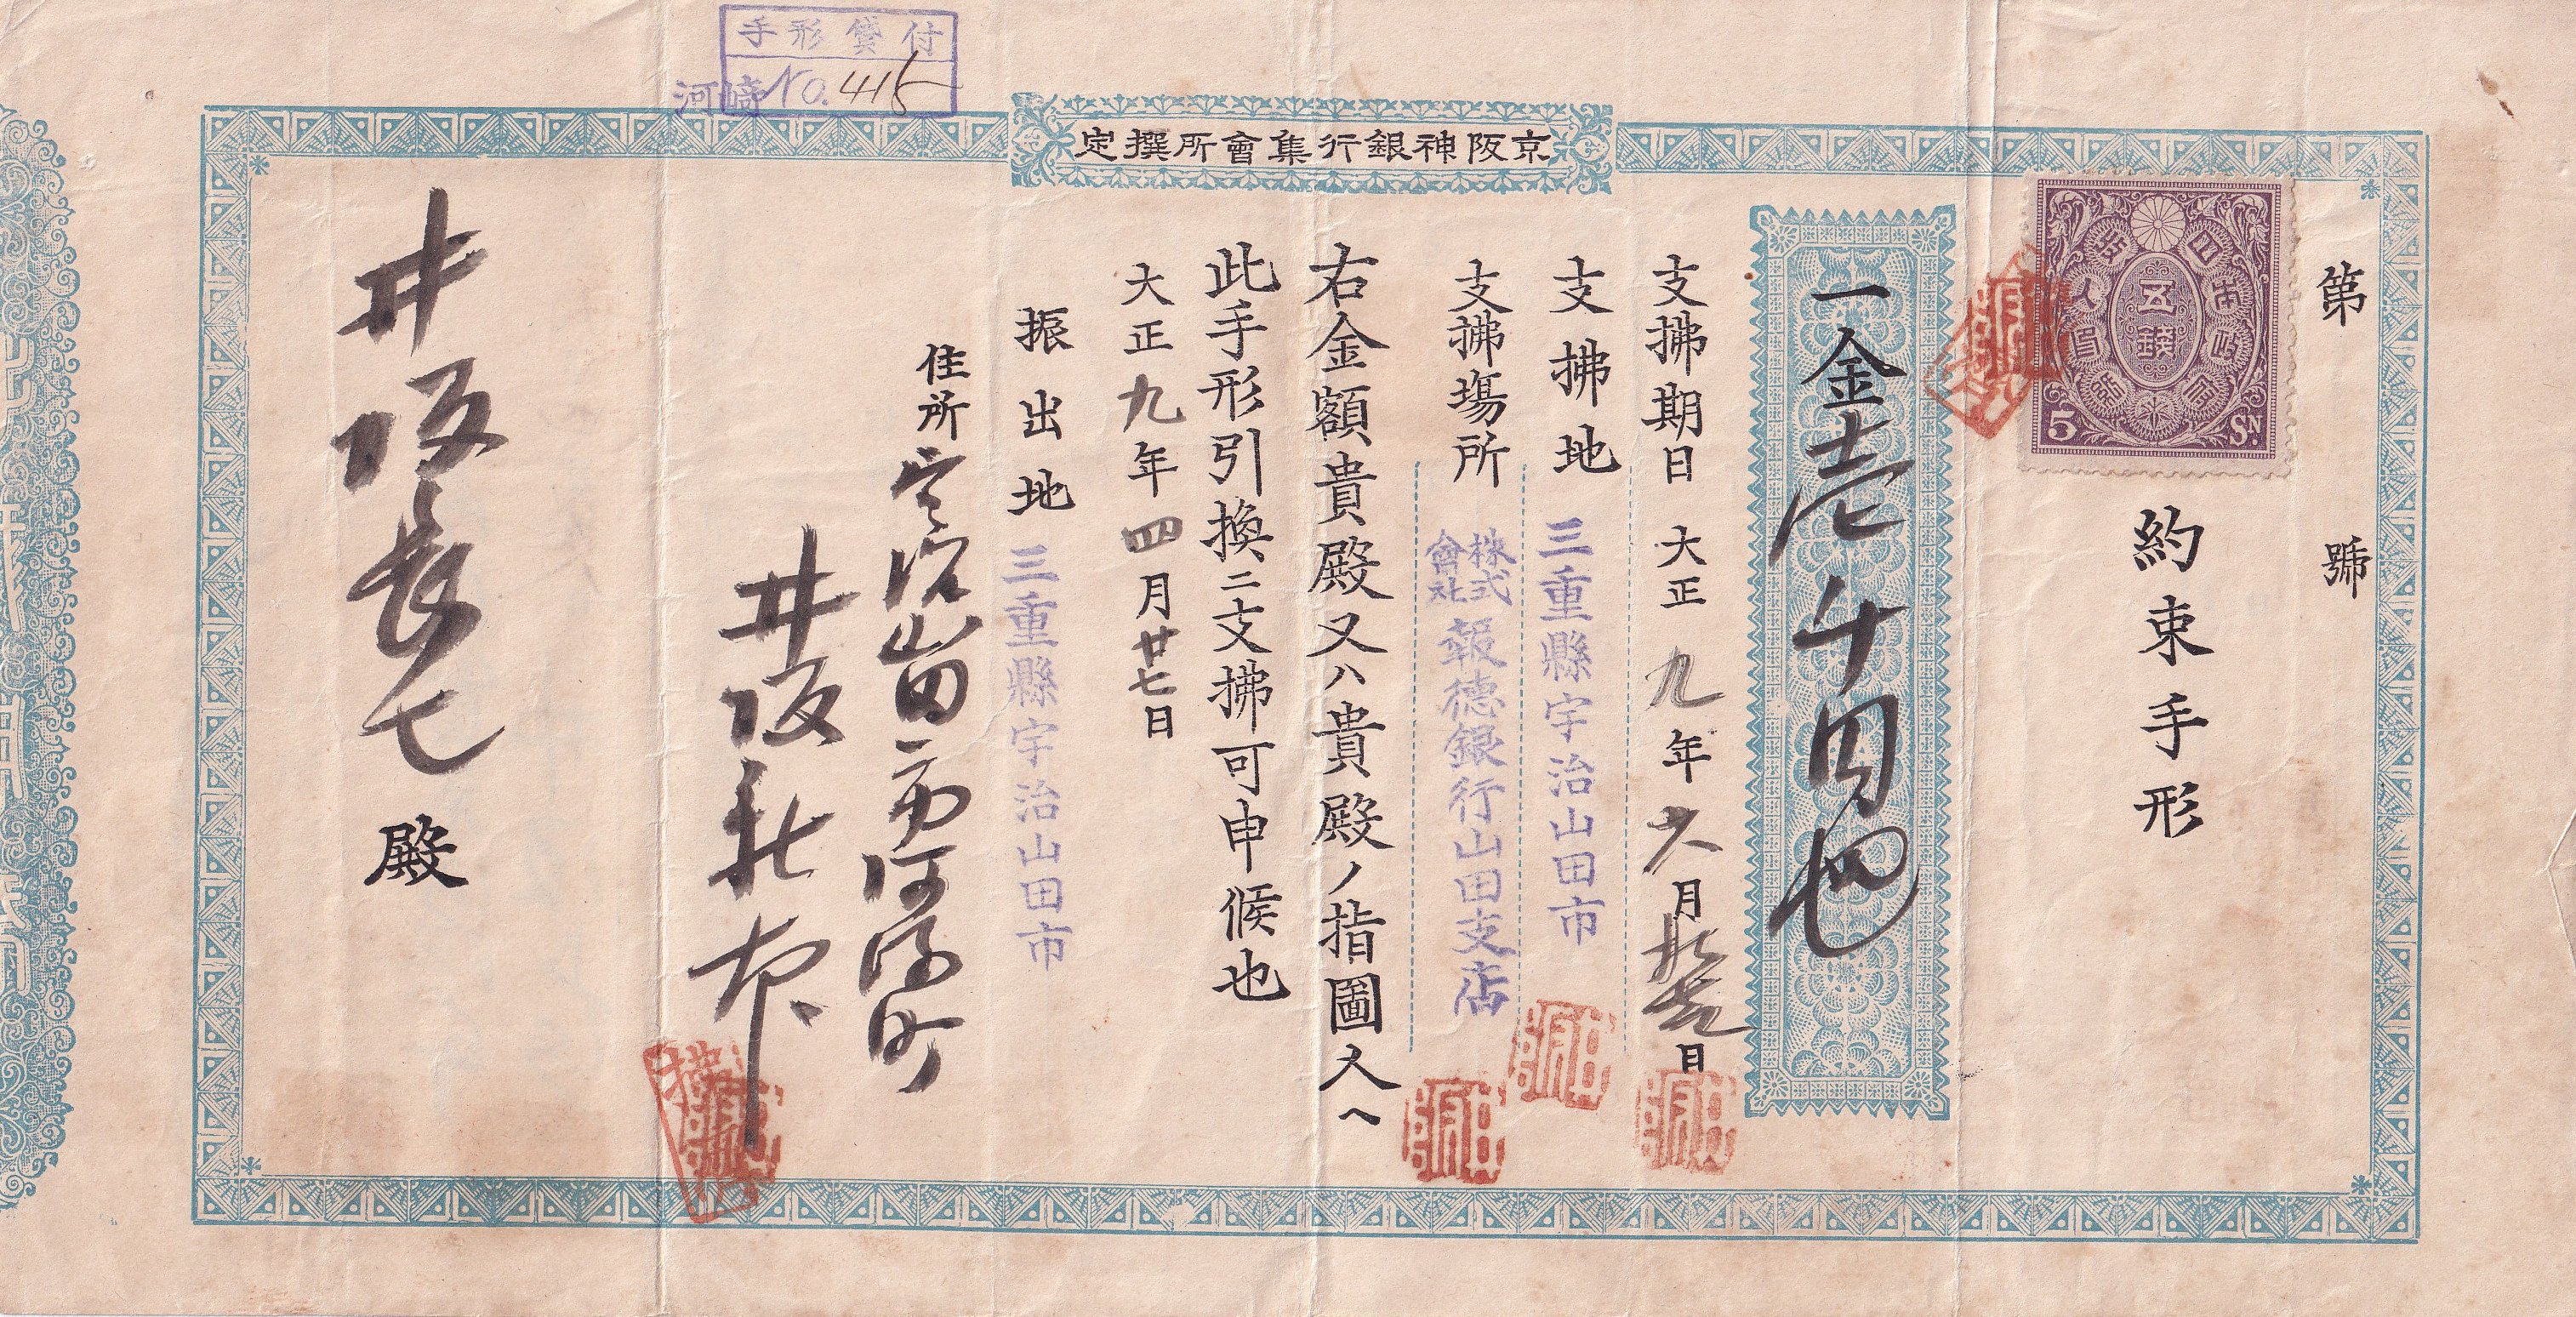 手形貸付
河崎 No. 415
京阪神銀行集會所撰定
第 號
五錢
5 SN
約束手形
一金壱千円也
支拂期日 大正九年六月廿六日
支拂地 三重縣宇治山田市
支拂塲所 株式會社報徳銀行山田支店
右金額貴殿又ハ貴殿ノ指圖人ヘ
此手形引換ニ支拂可申候也
大正九年四月廿七日
振出地 三重縣宇治山田市
住所 宇治山田市河崎町
井坂
井坂長七殿